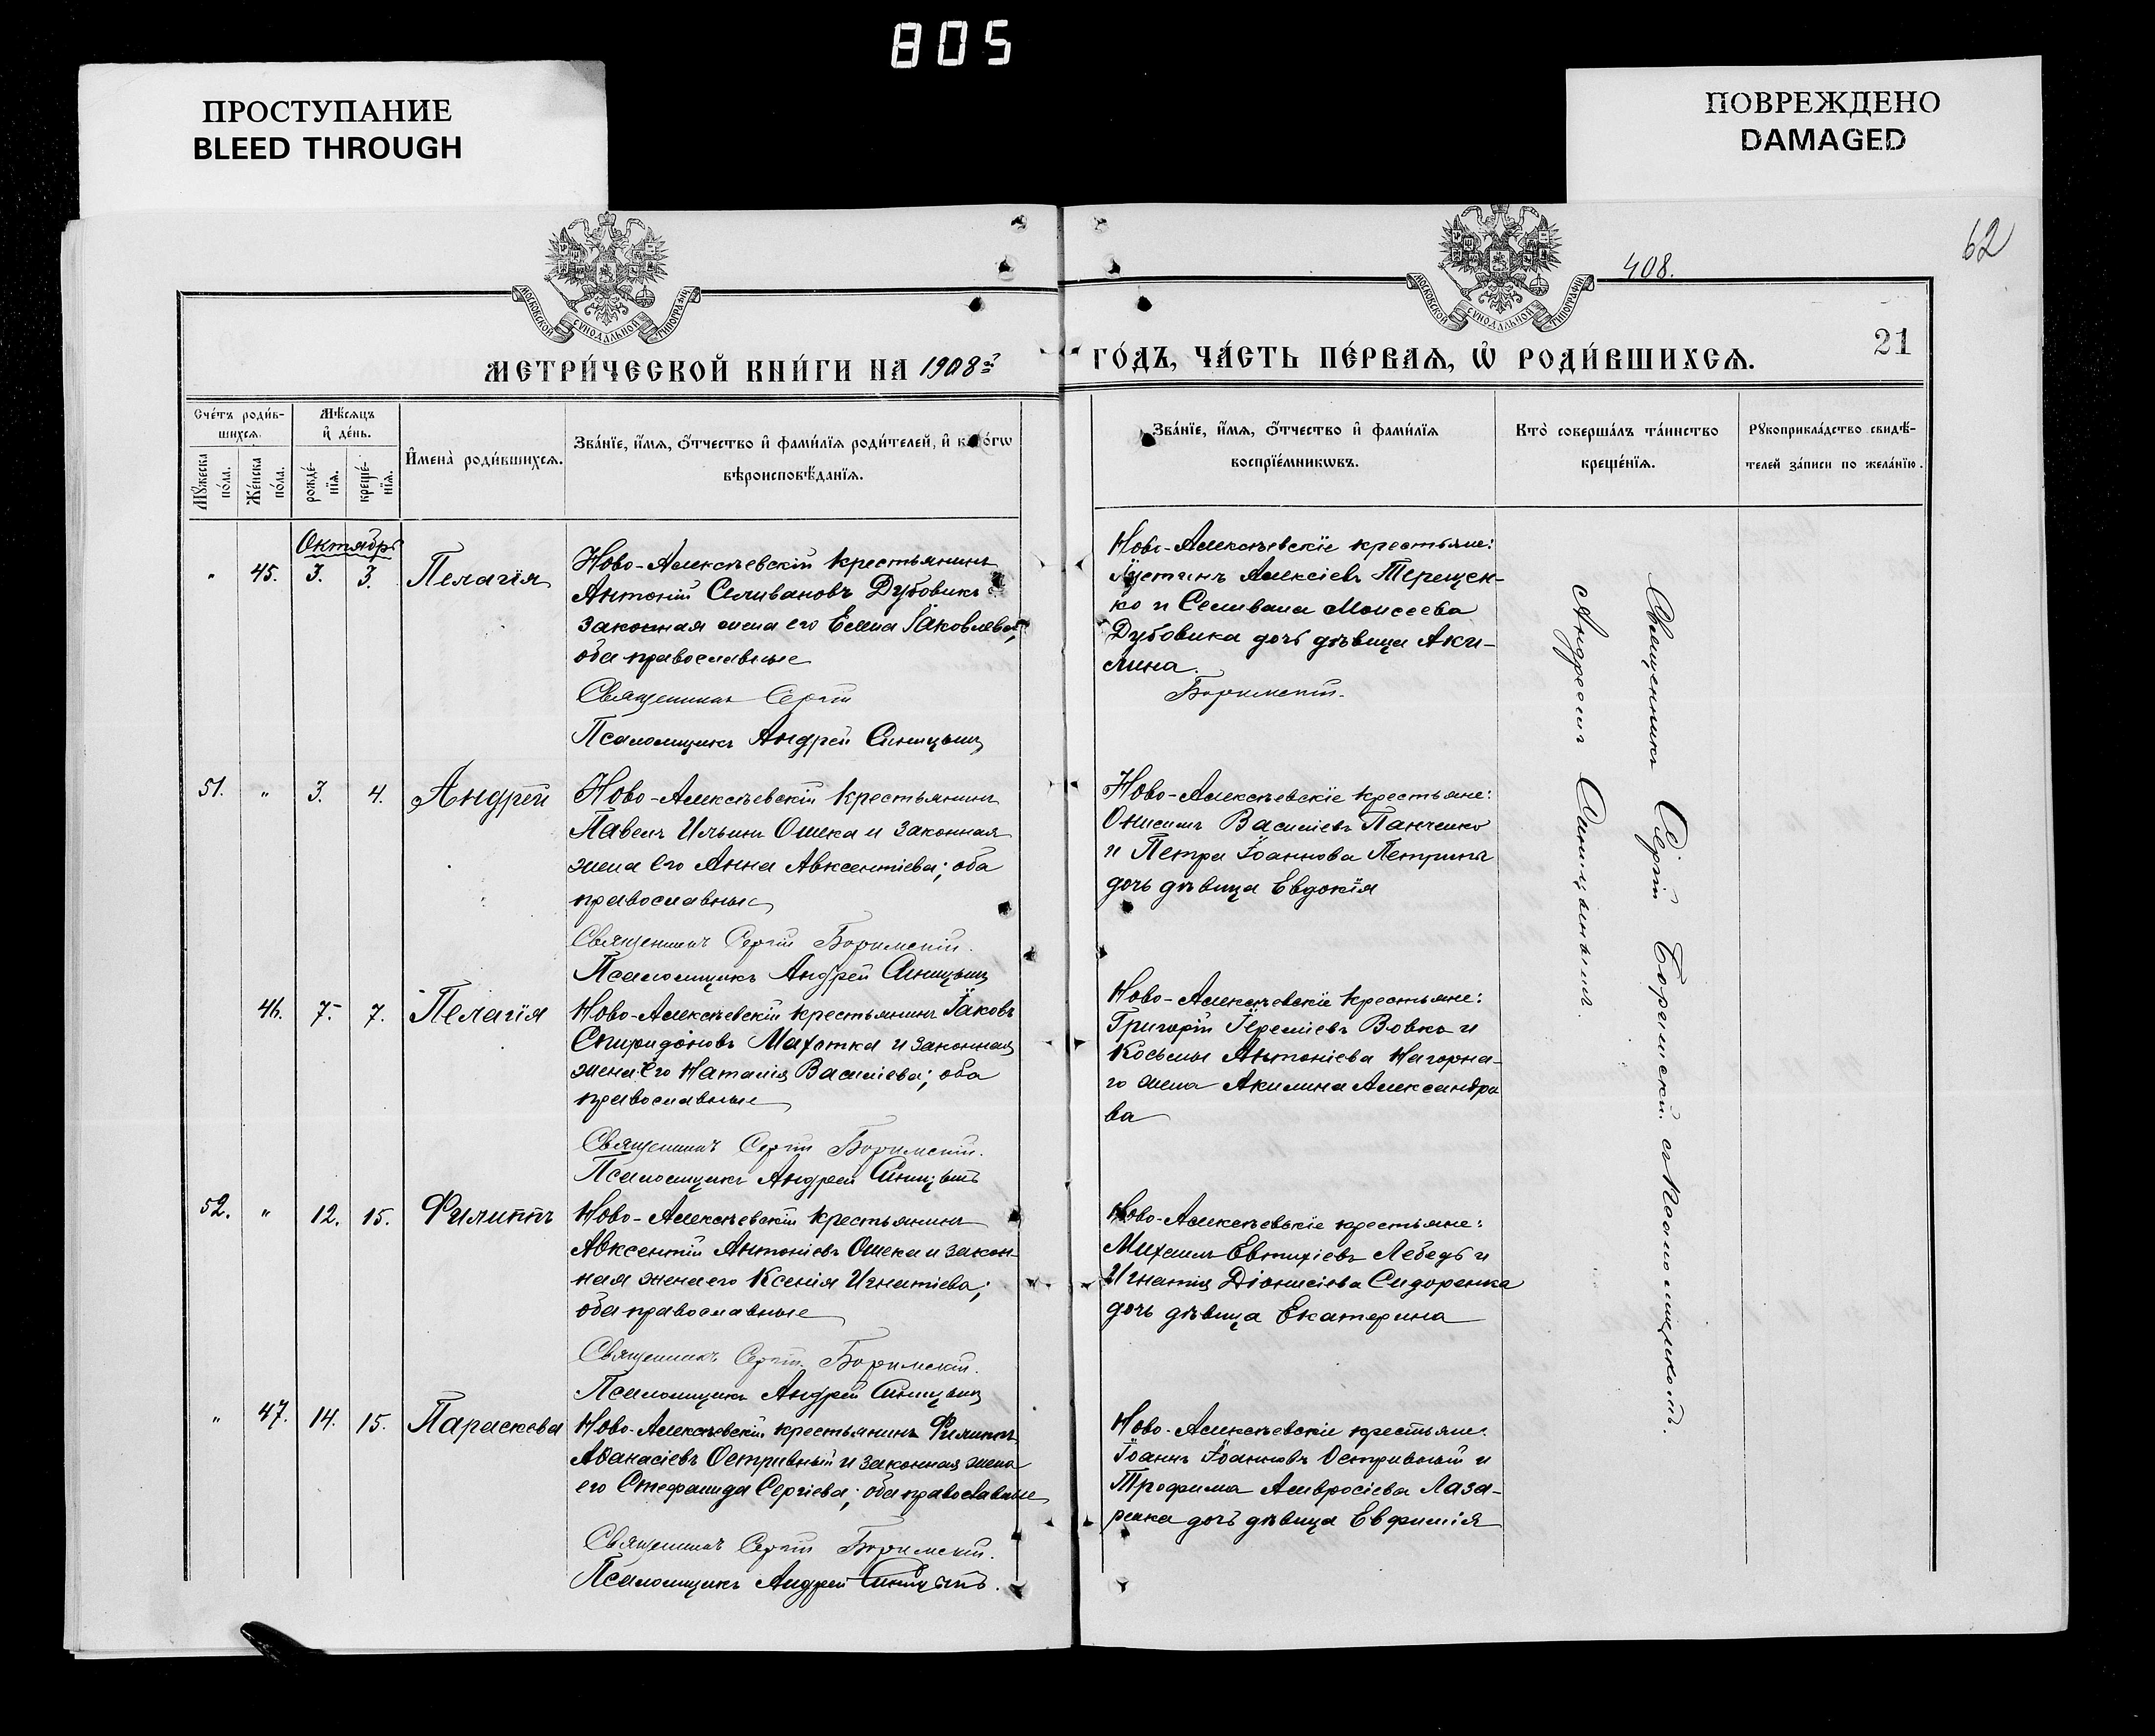 805
ПРОСТУПАНИЕ
BLEED THROUGH
ПОВРЕЖДЕНО
DAMAGED
62
408.
МОСКОВСКОЙ СѴНОДАЛЬНОЙ ТИПОГРАФІИ
МОСКОВСКОЙ СѴНОДАЛЬНОЙ ТИПОГРАФІИ
21
МЕТРИ́ЧЕСКОЙ КНИ́ГИ НА 1908й
ГО́ДЪ, ЧА́СТЬ ПЕ́РВАѦ, Ѽ РОДИ́ВШИХСѦ.
Сче́тъ роди́в-
шихсѧ.
Мѣ́сѧцъ
и҆ де́нь.
Мꙋ́жеска
по́ла.
Же́нска
по́ла.
рожде́-
нїѧ.
креще́-
нїѧ.
И҆мена̀ роди́вшихсѧ.
Зва́нїе, и҆́мѧ, ѻ҆́тчество и҆ фами́лїѧ роди́телей, и҆ како́гѡ
вѣроисповѣ́данїѧ.
Зва́нїе, и҆́мѧ, ѻ҆́тчество и҆ фами́лїѧ
воспрїе́мникѡвъ.
Кто̀ соверша́лъ та́инство
креще́нїѧ.
Рꙋкоприкла́дство свидѣ́-
телей за́писи по жела́нїю.
Октябрь
" 45. 3. 3. Пелагія
Ново-Алексѣевскій крестьянинъ
Антоній Селивановъ Дубовикъ и
законная жена его Елена Іаковлева;
оба православные
Священникъ Сергій
Псаломщикъ Андрей Синицынъ
Ново-Алексѣевскіе крестьяне:
Іустинъ Алексіевъ Терещен-
ко и Селивана Моисеева
Дубовика дочь дѣвица Аки-
лина.
Боримскій.
51. " 3. 4. Андрей
Ново-Алексѣевскій крестьянинъ
Павелъ Ильинъ Ошека и законная
жена его Анна Авксентіева; оба
православные
Священникъ Сергій Боримскій.
Псаломщикъ Андрей Синицынъ
Ново-Алексѣевскіе крестьяне:
Онисимъ Василіевъ Панченко
и Петра Іоаннова Петрина
дочь дѣвица Евдокія
46. 7. 7. Пелагія
Ново-Алексѣевскій крестьянинъ Іаковъ
Спиридоновъ Махотка и законная
жена его Наталія Василіева; оба
православные
Священникъ Сергій Боримскій.
Псаломщикъ Андрей Синицынъ
Ново-Алексѣевскіе крестьяне:
Григорій Іереміевъ Вовкъ и
Косьмы Антоніева Нагорна-
го жена Акилина Александро
ва
52. " 12. 15. Филиппъ
Ново-Алексѣевскій крестьянинъ
Авксентій Антоніевъ Ошека и закон-
ная жена его Ксенія Игнатіева;
оба православные
Священникъ Сергій Боримскій.
Псаломщикъ Андрей Синицынъ
Ново-Алексѣевскіе крестьяне:
Михаилъ Евтихіевъ Лебедь и
Игнатія Діонисіева Сидоренка
дочь дѣвица Екатерина
" 47. 14. 15. Параскева
Ново-Алексѣевскій крестьянинъ Филиппъ
Аѳанасіевъ Остривный и законная жена
его Стефанида Сергіева; оба православные
Священникъ Сергій Боримскій.
Псаломщикъ Андрей Синицынъ.
Ново-Алексѣевскіе крестьяне:
Іоаннъ Іоанновъ Остривный и
Трофима Амвросіева Лаза-
ренка дочь дѣвица Евфимія
Священникъ Сергій Боримскій съ псаломщикомъ
Андреемъ Синицынымъ.